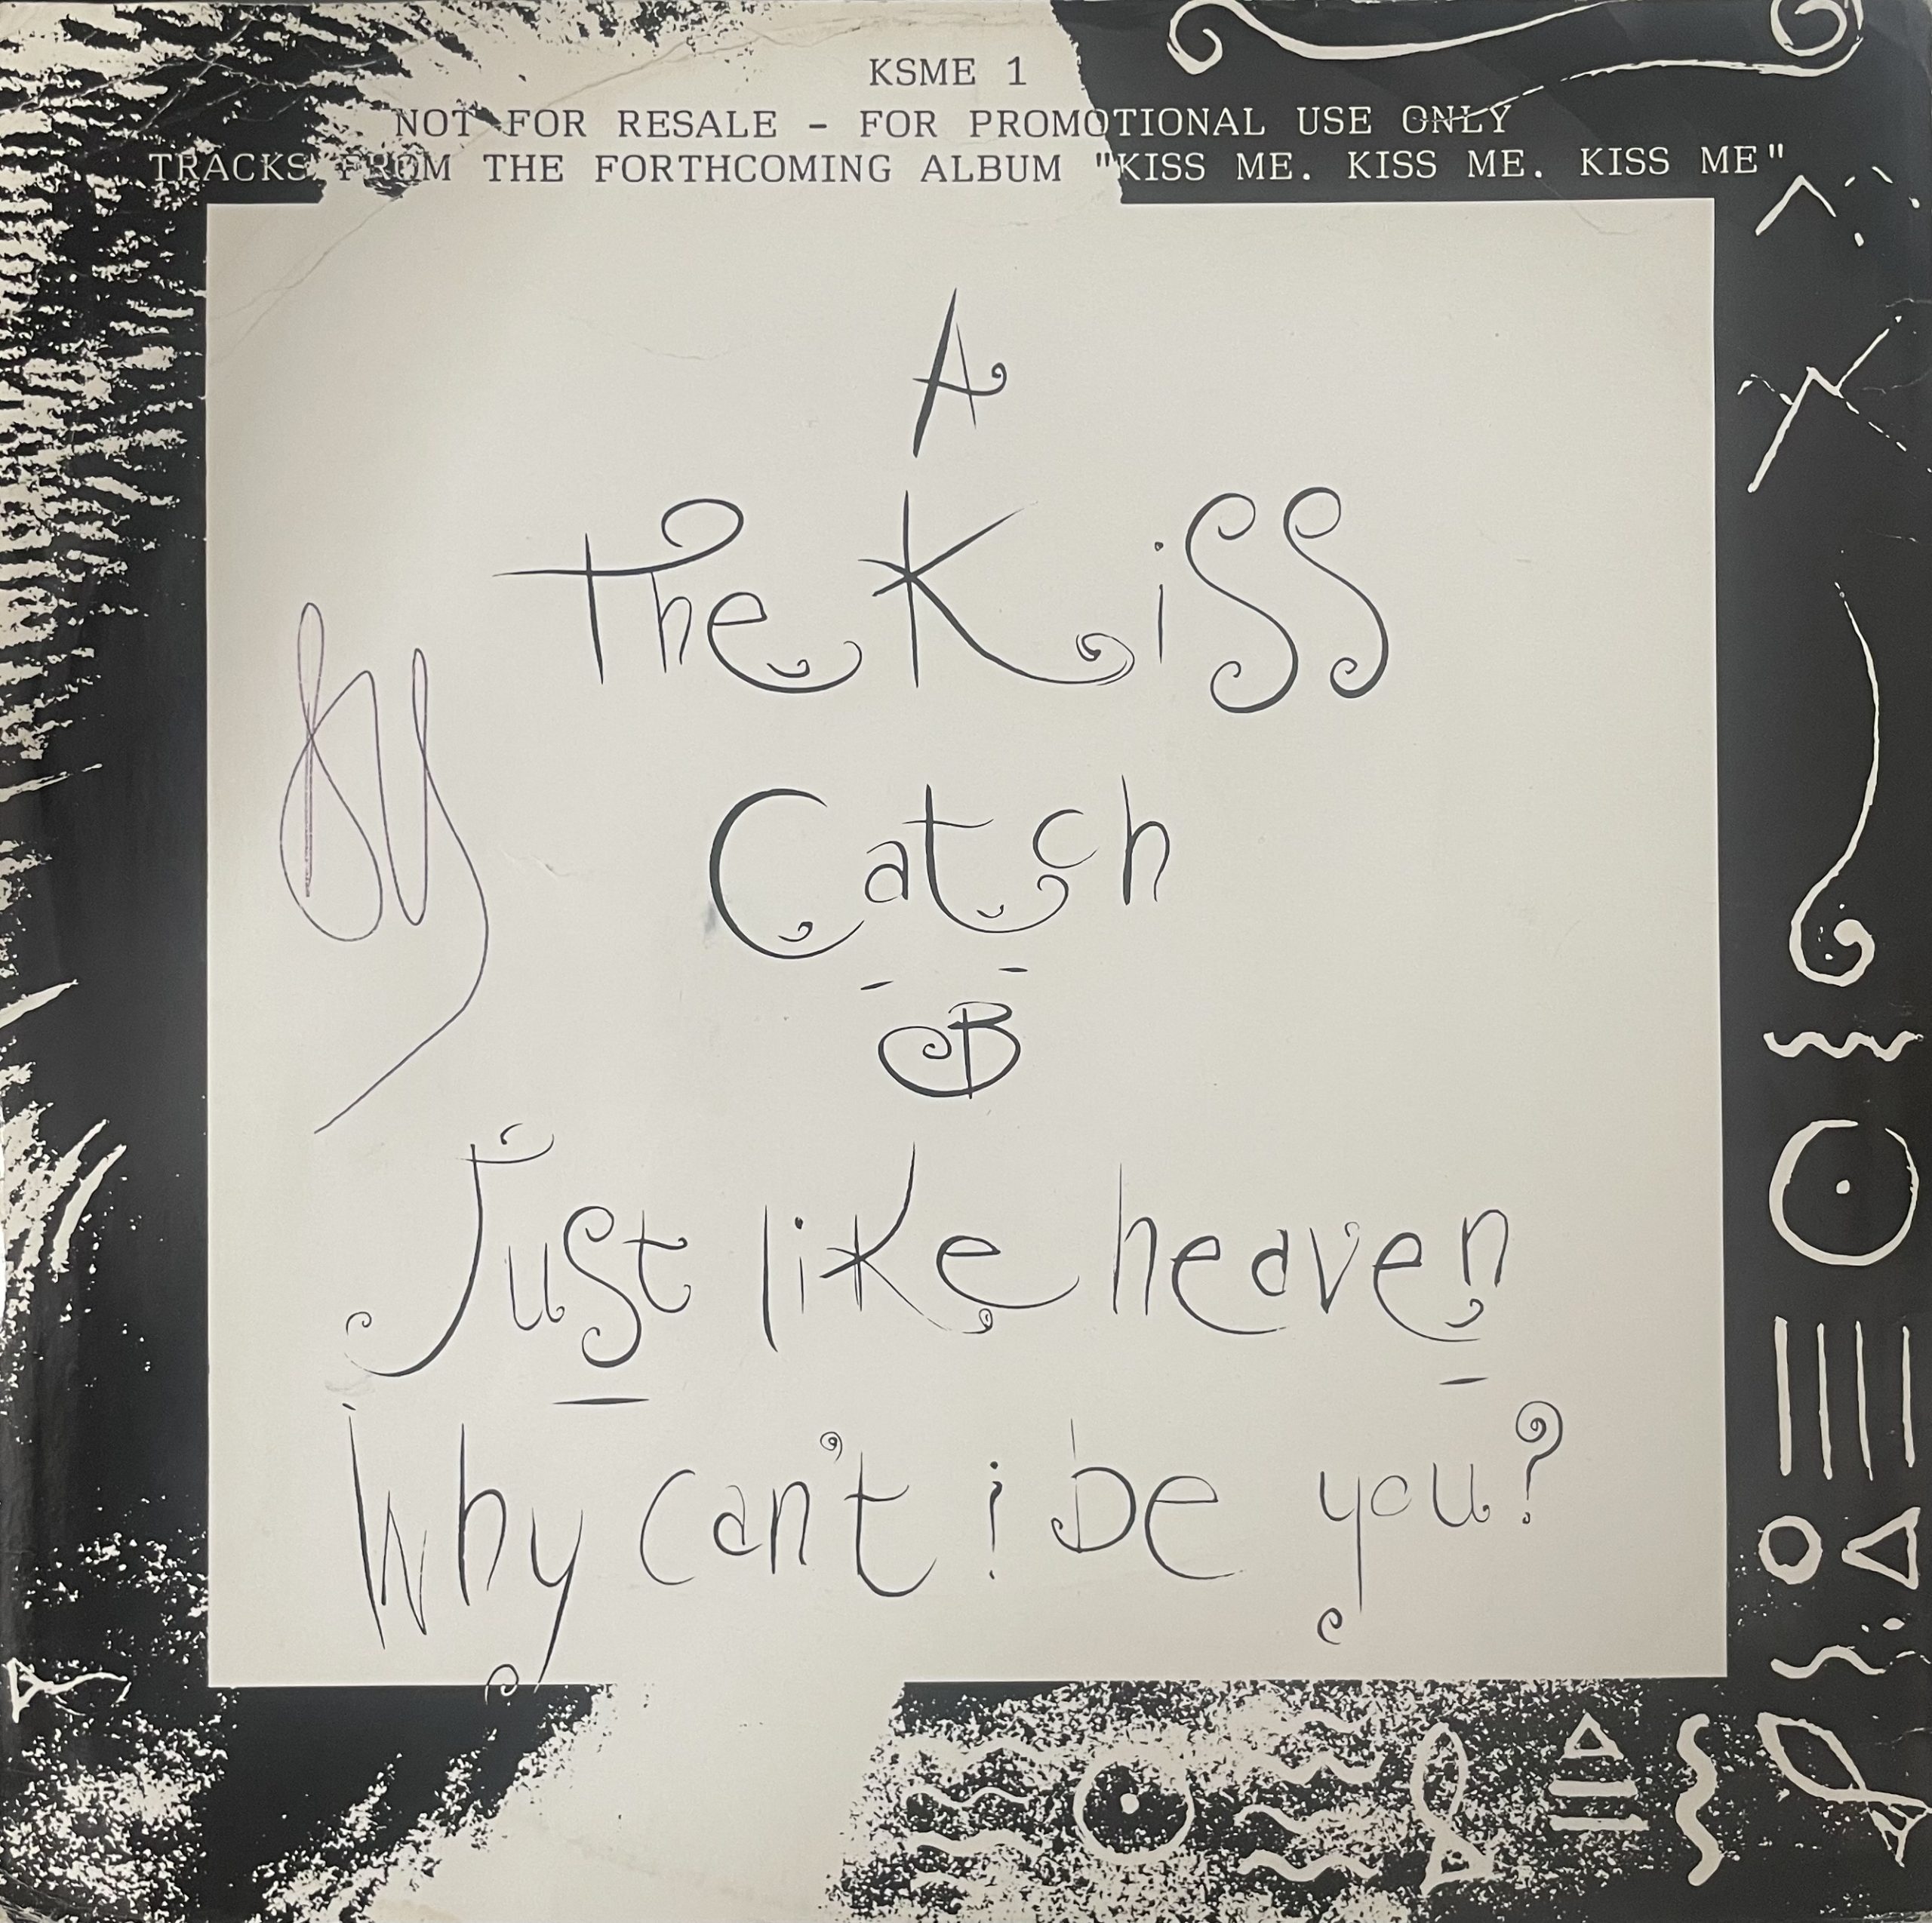 KSME 1
NOT FOR RESALE - FOR PROMOTIONAL USE ONLY
TRACKS FROM THE FORTHCOMING ALBUM "KISS ME. KISS ME. KISS ME"
A
The Kiss
Catch
B
Just like heaven
Why can't i be you?